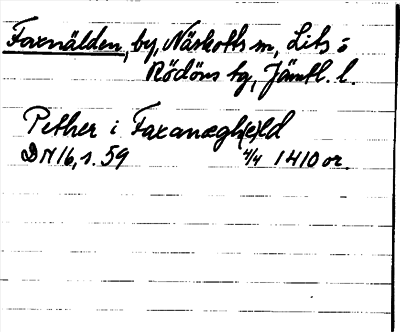 Faxnälden, by, Näskotts sn, Lits o
Rödöns tg, Jämtl. l.
Pether i Faxanægh(e)ld
DN 16, s. 59 4/4 1410 or.